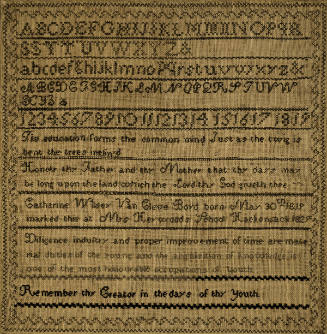 ABCDEFGHIJKLMNOPQR
SSTTUVWXYZ&
abcdefghijklmnopqrstuvwxyz&
ABCDEFGHIKLMNOPQRSTUVW
XYZ&
12345678910 11 12 13 14 15 16 17 18 19
Tis education forms the common mind Just as the twig is
bent the trees inclin'd
Honour thy Father and thy Mother that thy days may
be long upon the land which the Lord thy God giveth thee
Catharine Van Born May 30th
marked this at Mrs School Hackensack
Diligence industry and proper improvement of time are mate
rial duties of the young and the acquisition of knowledge is
one of the most honorable occupations of Youth
Remember thy Creator in the days of thy Youth